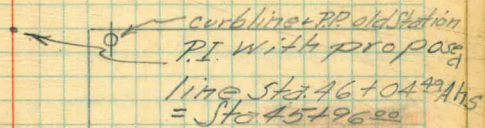 curbline & P.P. old Station
P.I. With proposed
line Sta. 46+04.49 Ahs
= Sta 45+96.00